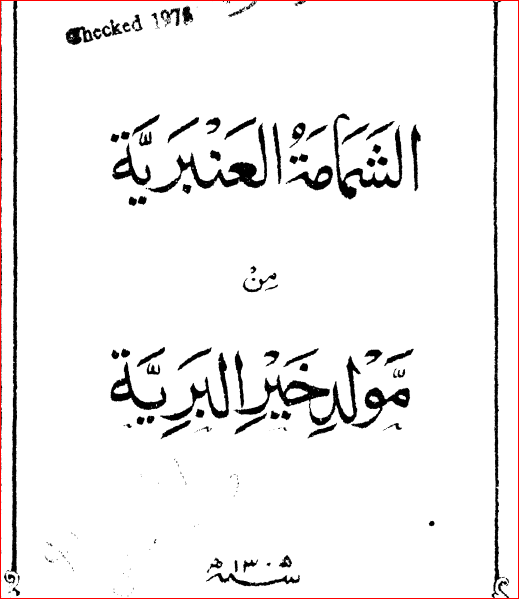 Checked 1978
الشَّمَامَةُ العَنْبَرِيَّة
مِنْ
مَّوْلِدِ خَيْرِ البَرِيَّة